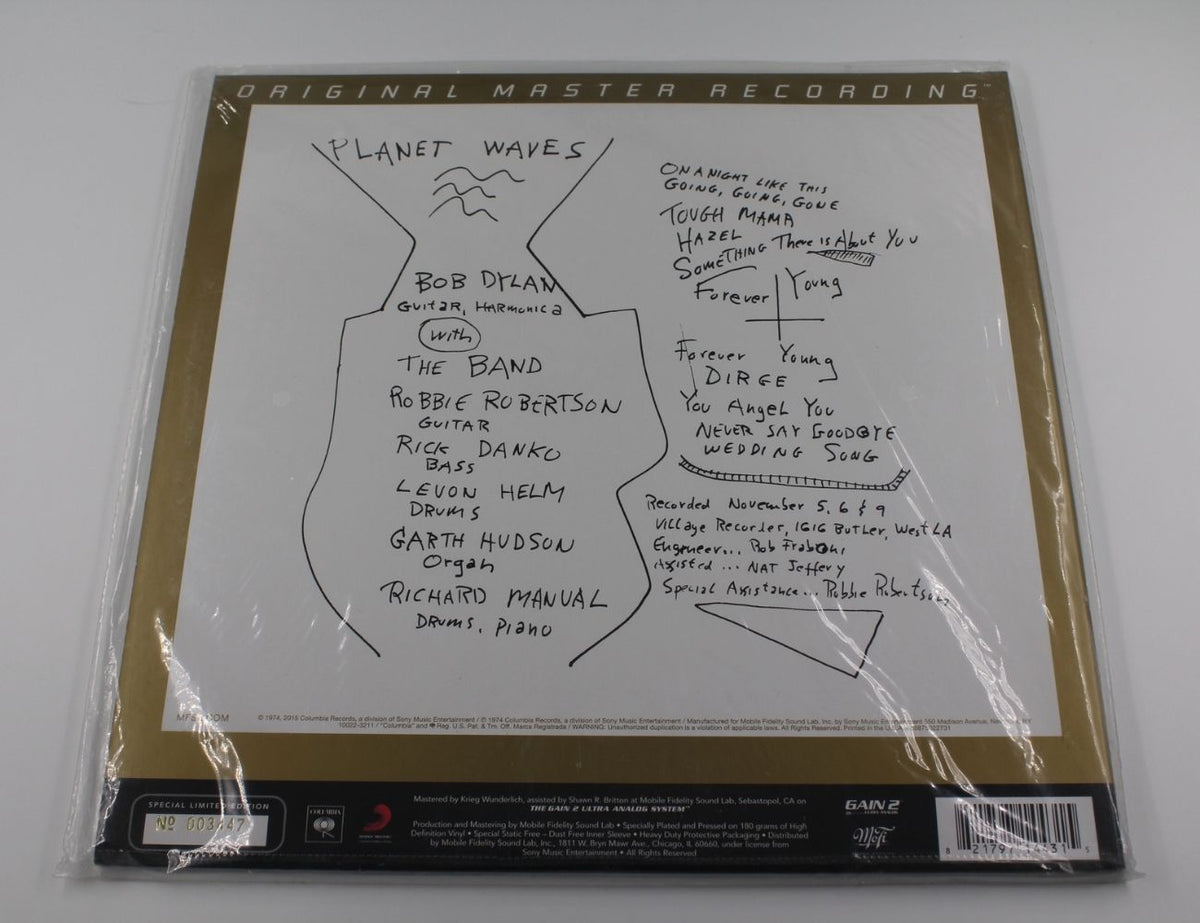 ORIGINAL MASTER RECORDING™
PLANET WAVES
BOB DYLAN
GUITAR, HARMONICA
With
THE BAND
ROBBIE ROBERTSON
GUITAR
RICK DANKO
BASS
LEVON HELM
DRUMS
GARTH HUDSON
Organ
RICHARD MANUAL
DRUMS, PIANO
ON A NIGHT LIKE THIS
GOING, GOING, GONE
TOUGH MAMA
HAZEL
SOMETHING There is About You
Forever Young
Forever Young
DIRGE
You Angel You
NEVER SAY GOODBYE
WEDDING SONG
Recorded November 5, 6 & 9
Village Recorder, 1616 Butler, West LA
Engeneer... Rob Fraboni
Assisted ... NAT Jeffery
Special Assistance... Robbie Robertson
© 1974, 2015 Columbia Records, a division of Sony Music Entertainment / ℗ 1974 Columbia Records, a division of Sony Music Entertainment / Manufactured for Mobile Fidelity Sound Lab, Inc. by Sony Music Entertainment 550 Madison Avenue, NY
10022-3211 / "Columbia" and Reg. U.S. Pat. & Tm. Off. Marca Registrada / WARNING: Unauthorized duplication is a violation of applicable laws. All Rights Reserved. Printed in the
SPECIAL LIMITED EDITION
Nº 003447
COLUMBIA
Mastered by Krieg Wunderlich, assisted by Shawn R. Britten at Mobile Fidelity Sound Lab, Sebastopol, CA on
THE GAIN 2 ULTRA ANALOG SYSTEM™
Production and Mastering by Mobile Fidelity Sound Lab, Inc. • Specially Plated and Pressed on 180 grams of High
Definition Vinyl • Special Static Free – Dust Free Inner Sleeve • Heavy Duty Protective Packaging • Distributed
by Mobile Fidelity Sound Lab, Inc., 1811 W. Bryn Mawr Ave., Chicago, IL 60660, under license from
Sony Music Entertainment • All Rights Reserved
GAIN 2
MoFi